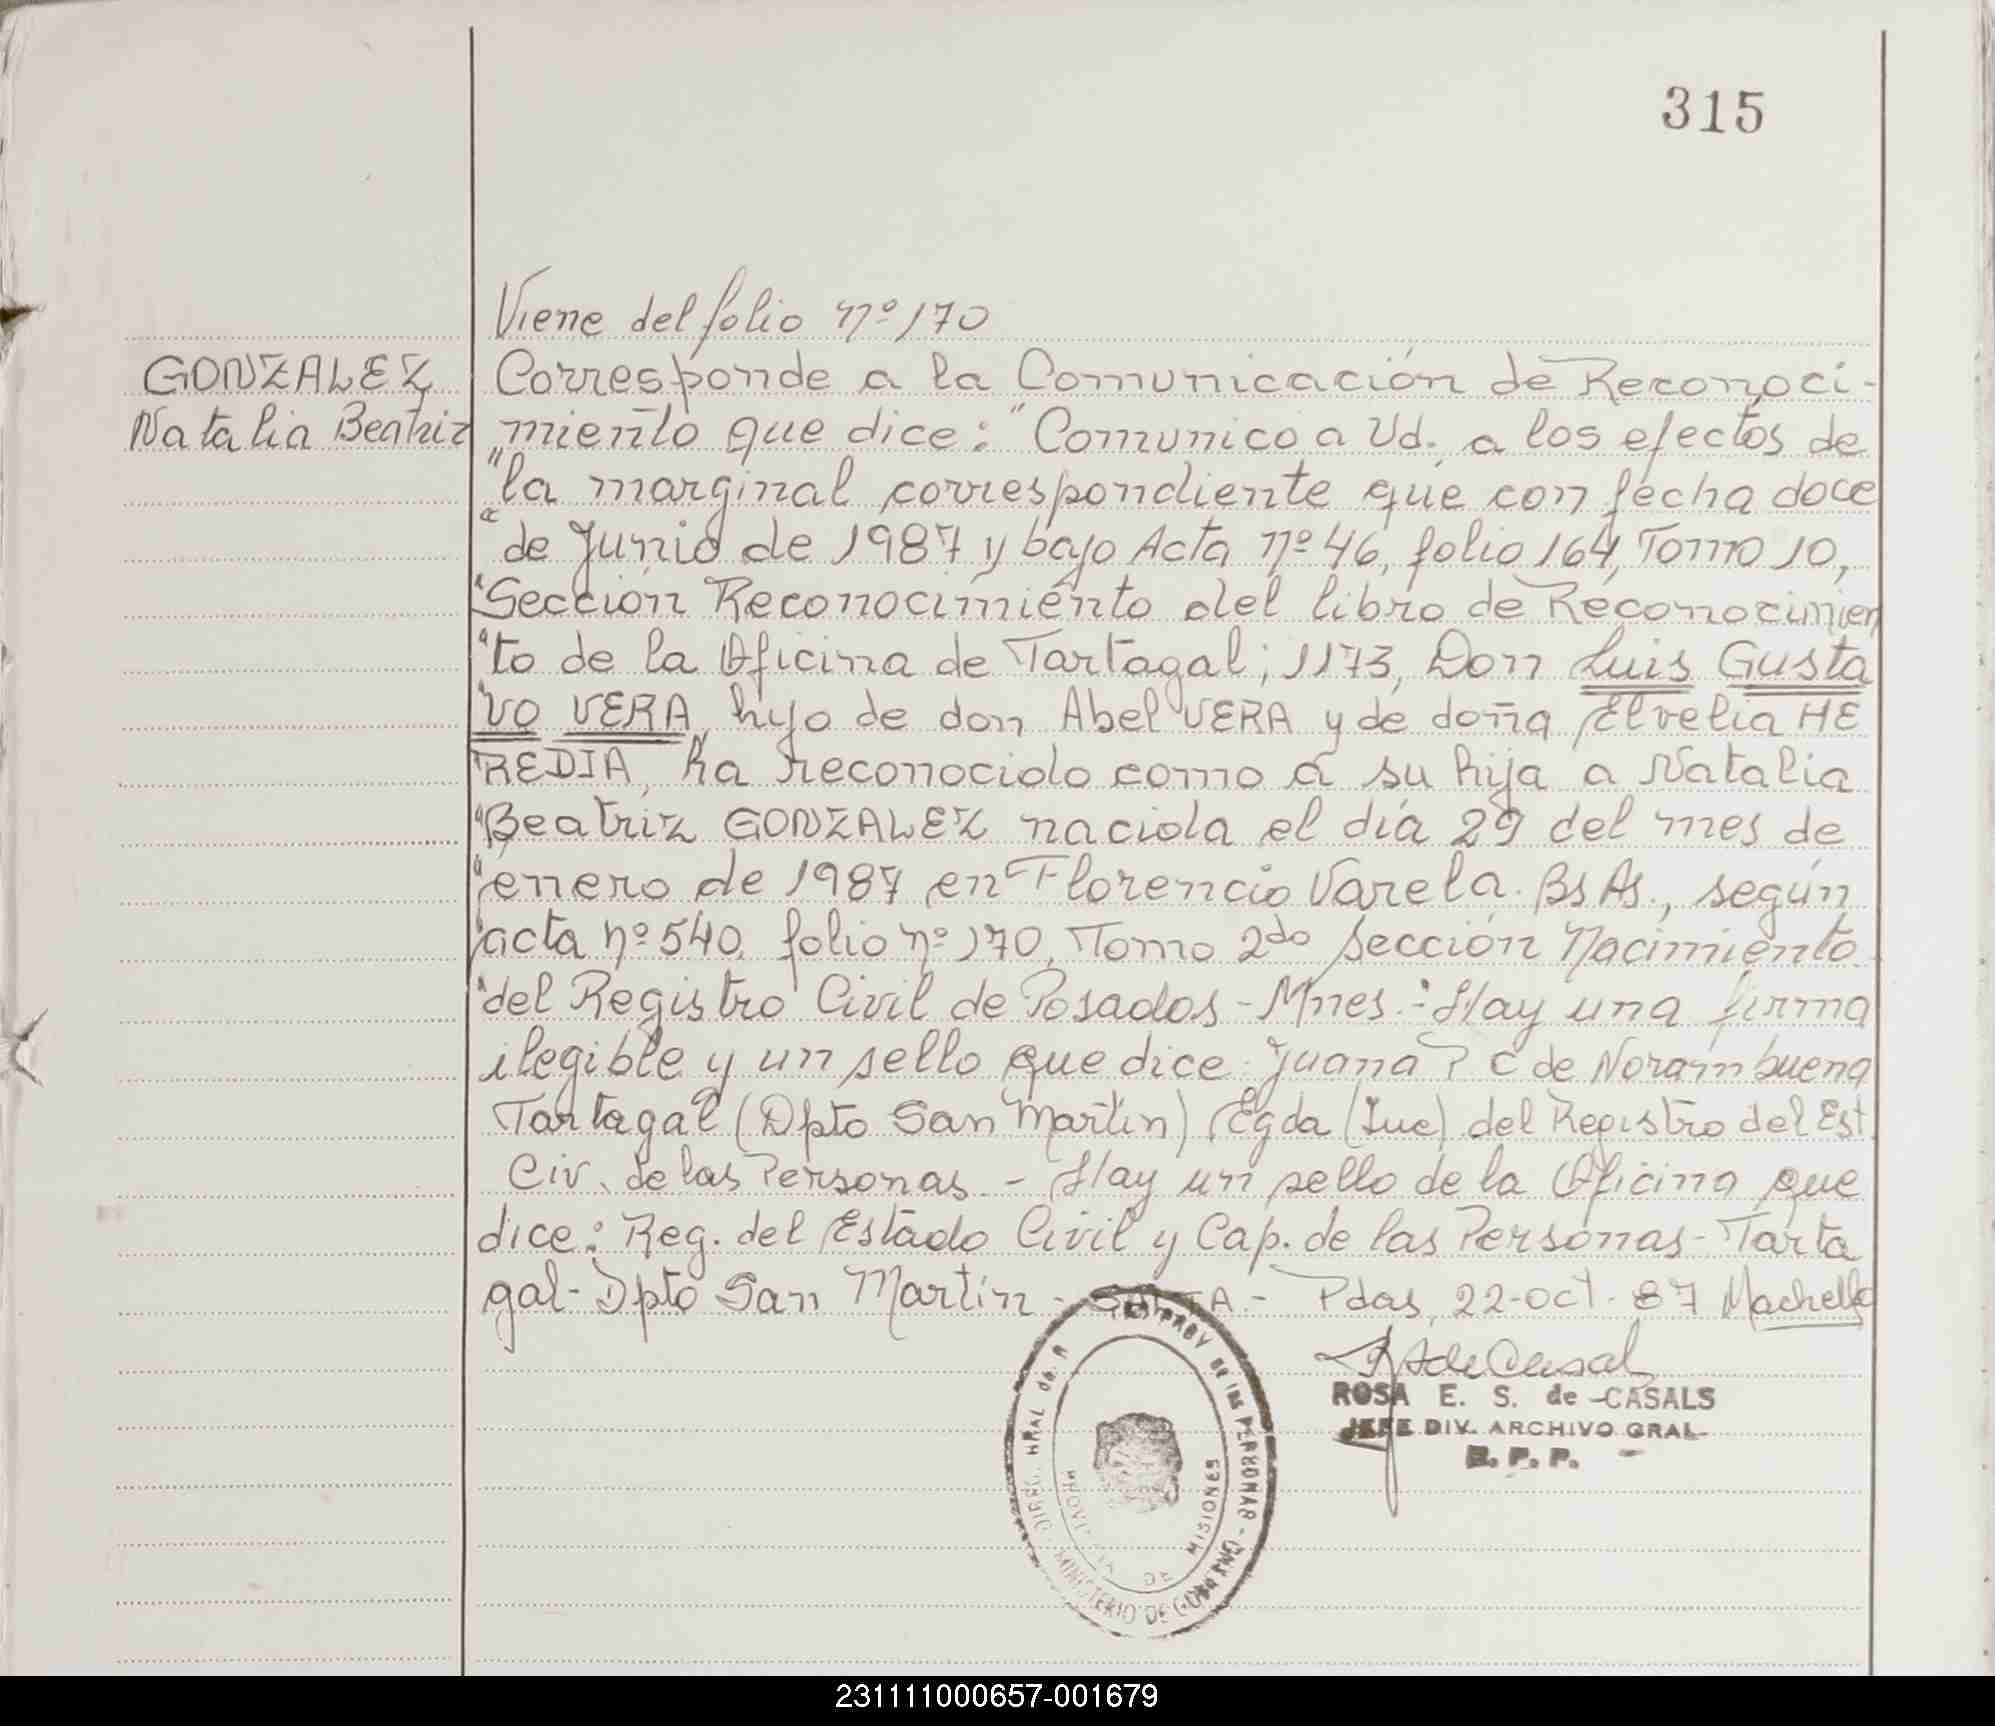 315
Viene del folio nº 170
GONZALEZ
Natalia Beatriz
Corresponde a la Comunicación de Reconoci-
miento que dice: "Comunico a Ud. a los efectos de
"la marginal correspondiente que con fecha doce
"de Junio de 1987 y bajo Acta nº 46, folio 164, Tomo 10,
"Sección Reconocimiento del libro de Reconocimien
"to de la Oficina de Tartagal; 1173, Don Luis Gusta
"vo VERA, hijo de don Abel VERA y de doña Elvelia HE
"REDIA, ha reconocido como a su hija a Natalia
"Beatriz GONZALEZ nacida el día 29 del mes de
"enero de 1987 en Florencio Varela. Bs As., según
"acta nº 540, folio nº 170, Tomo 2do sección Nacimiento
"del Registro Civil de Posadas - Mnes.- Hay una firma
ilegible y un sello que dice Juana P C de Norambuena
Tartagal (Dpto San Martín) Egda (Iue) del Registro del Est.
Civ. de las Personas. - Hay un sello de la Oficina que
dice: Reg. del Estado Civil y Cap. de las Personas - Tarta
gal - Dpto San Martín - SALTA - Pdas, 22-oct-87
ROSA E. S. de CASALS
JEFE DIV. ARCHIVO GRAL-
R. P. P.
DE LAS PERSONAS
MINISTERIO DE GOBIERNO
MISIONES
DE
231111000657-001679